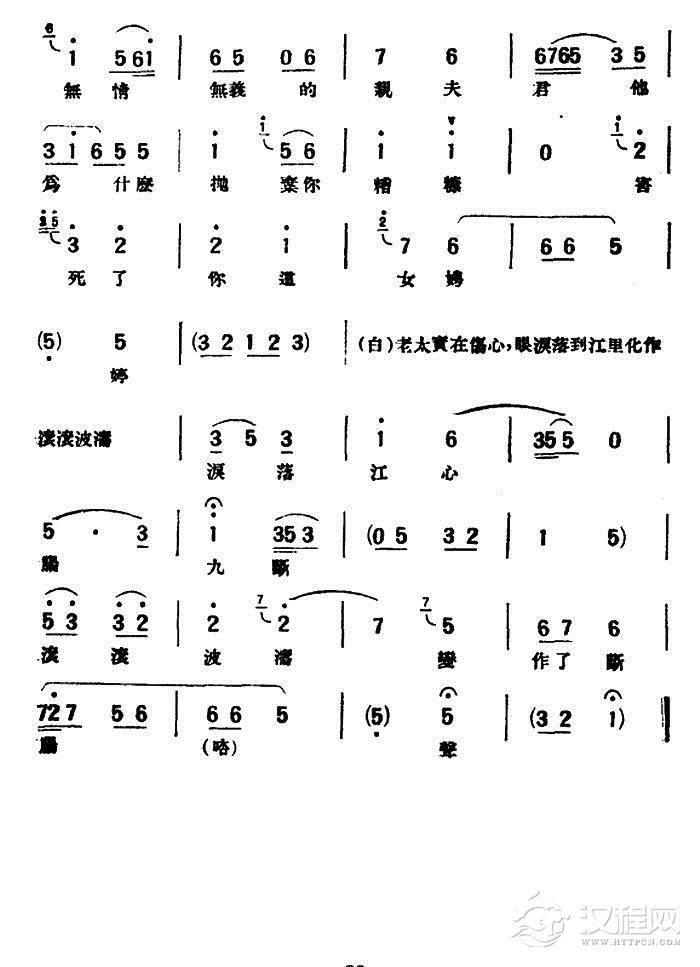 6 1 5 6 1 | 6 5 0 6 | 7 6 | 6765 3 5
無情 無義的 親夫 君他
3 1 6 5 5 | 1 1 5 6 | 1 1 | 0 1 2
爲什麽 拋棄你 糟糠 害
3 5 3 2 | 2 1 | 2 7 6 | 6 6 5
死了 你這 女娉
(5) 5 | (3 2 1 2 3) | (白)老太實在傷心,眼淚落到江里化作
婷
滚滚波濤 | 3 5 3 | 1 6 | 35 5 0
淚落 江心
5 · 3 | 1 35 3 | (0 5 3 2 | 1 5)
腸 九斷
5 3 3 2 | 2 7 2 | 7 7 5 | 6 7 6
滚滚 波濤 變 作了斷
727 5 6 | 6 6 5 | (5) 5 | (3 2 1)
腸 (咯) 聲
汉程网
HTTPCN.COM